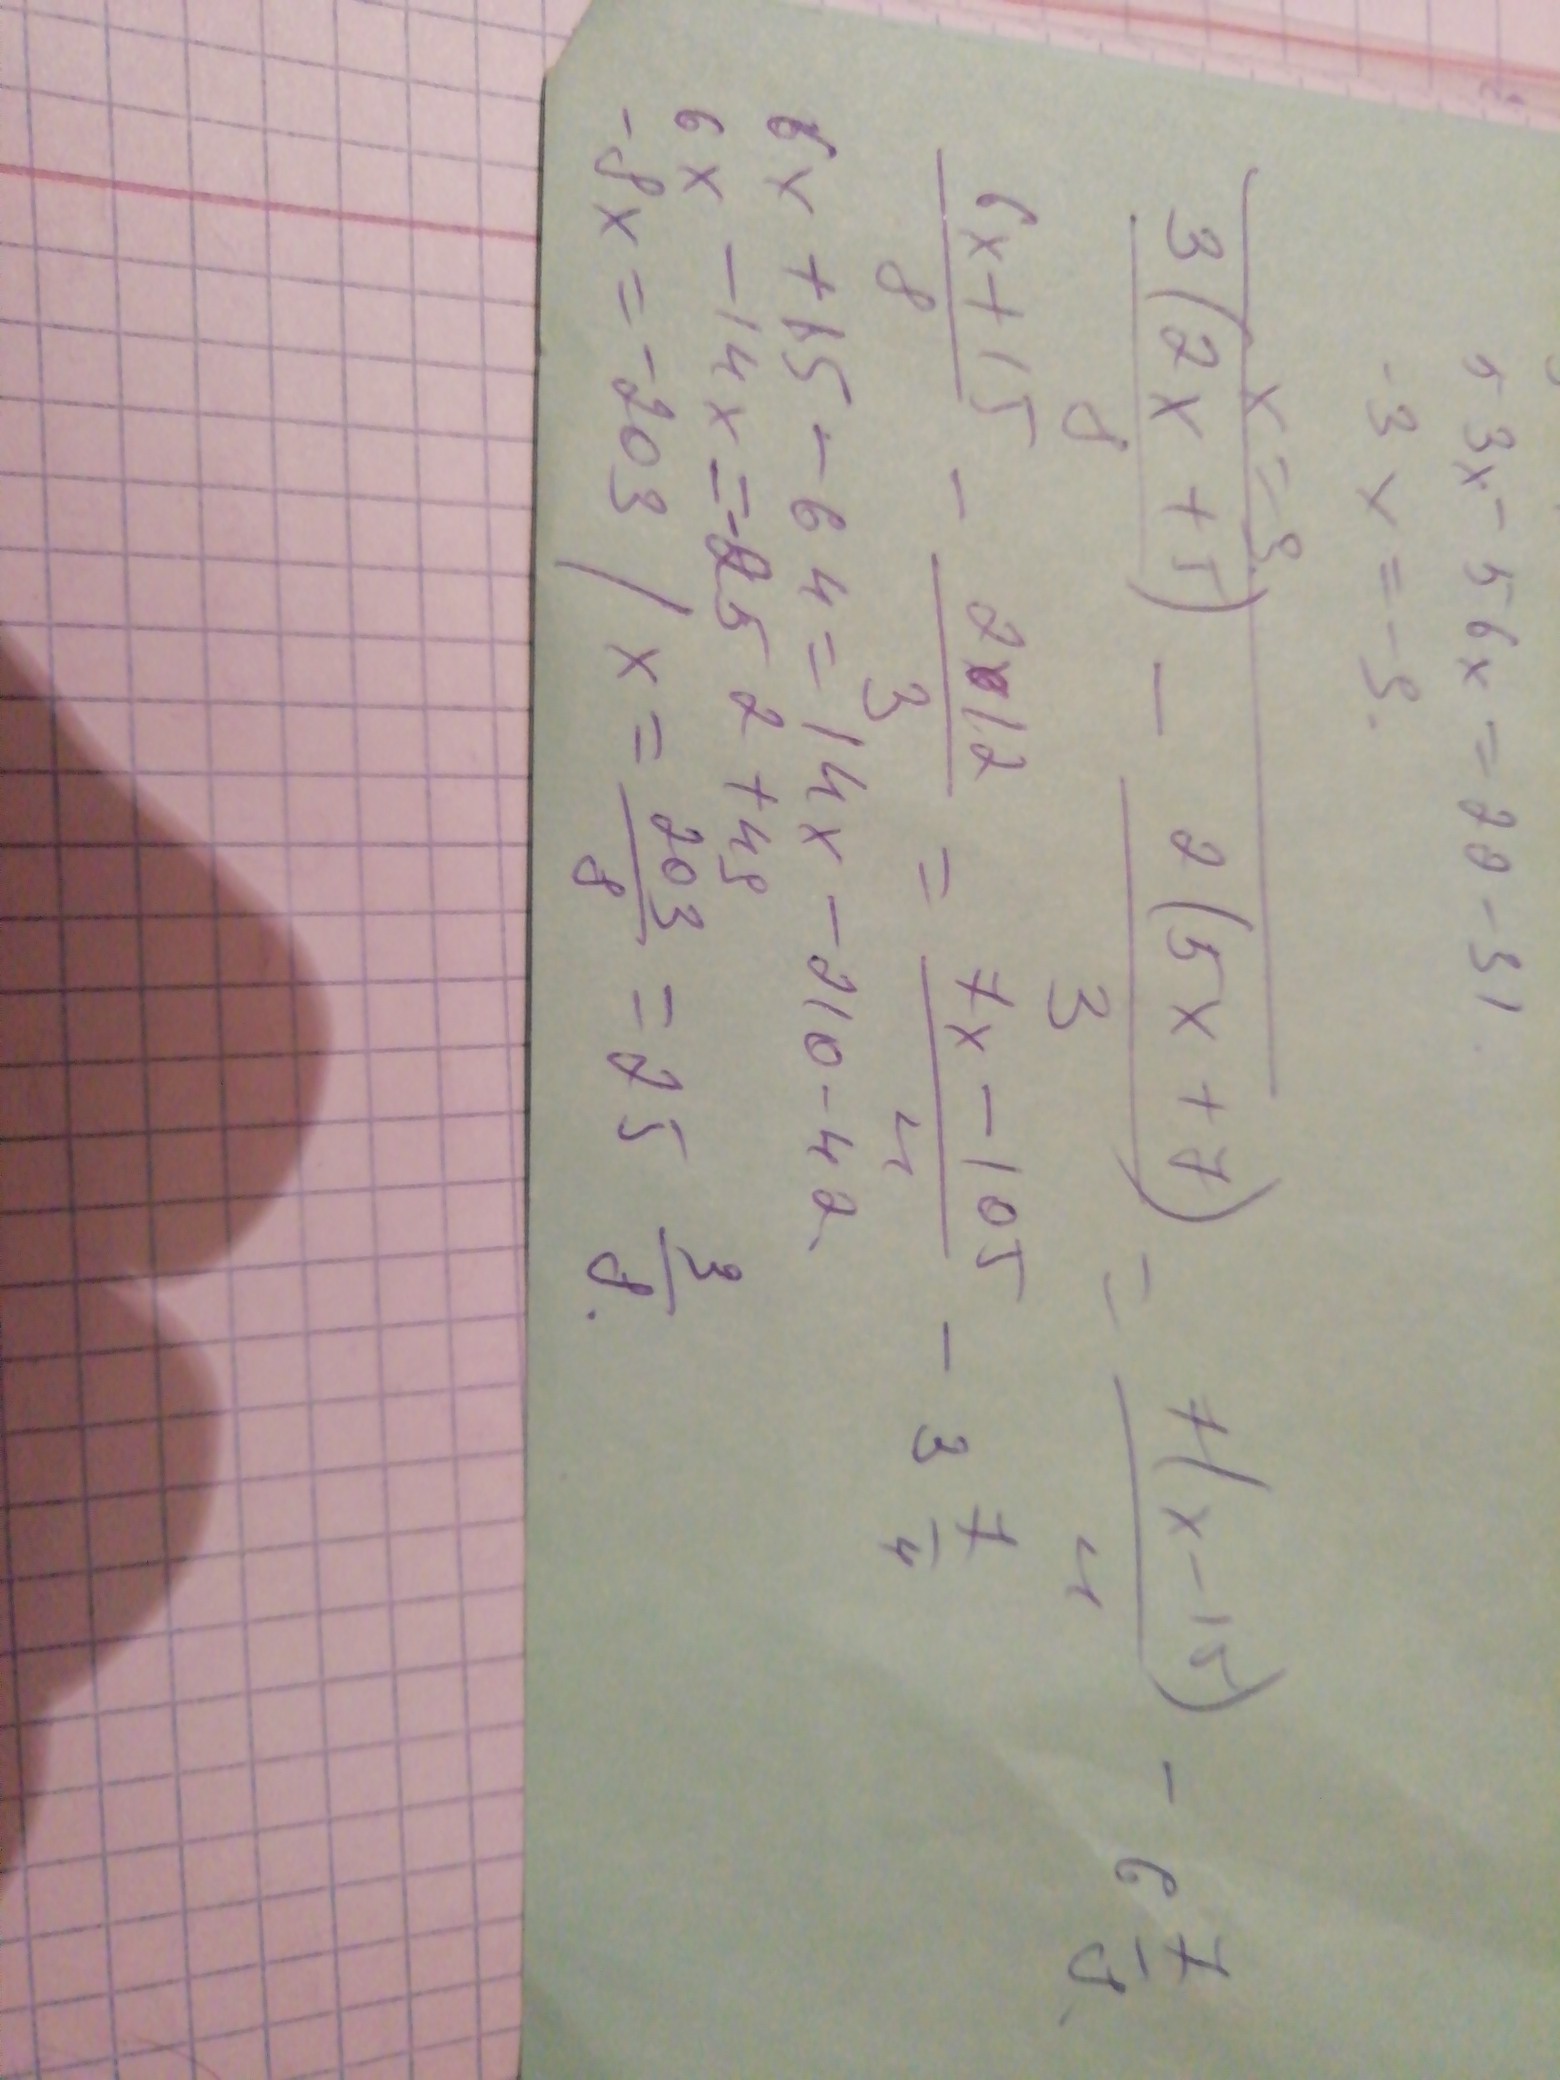 3x - 56x = 20 - 91
-3x = -9.
x = 9.
3(2x + 5)/8 - 2(5x + 7)/3 = 7(x - 15)/4 - 6 7/8.
6x + 15/8 - 2 12/3 = 7x - 105/4 - 3 7/4
6x + 15 - 64 = 14x - 210 - 42.
6x - 14x = -252 + 49
-8x = -203 / x = 203/8 = 25 3/8.